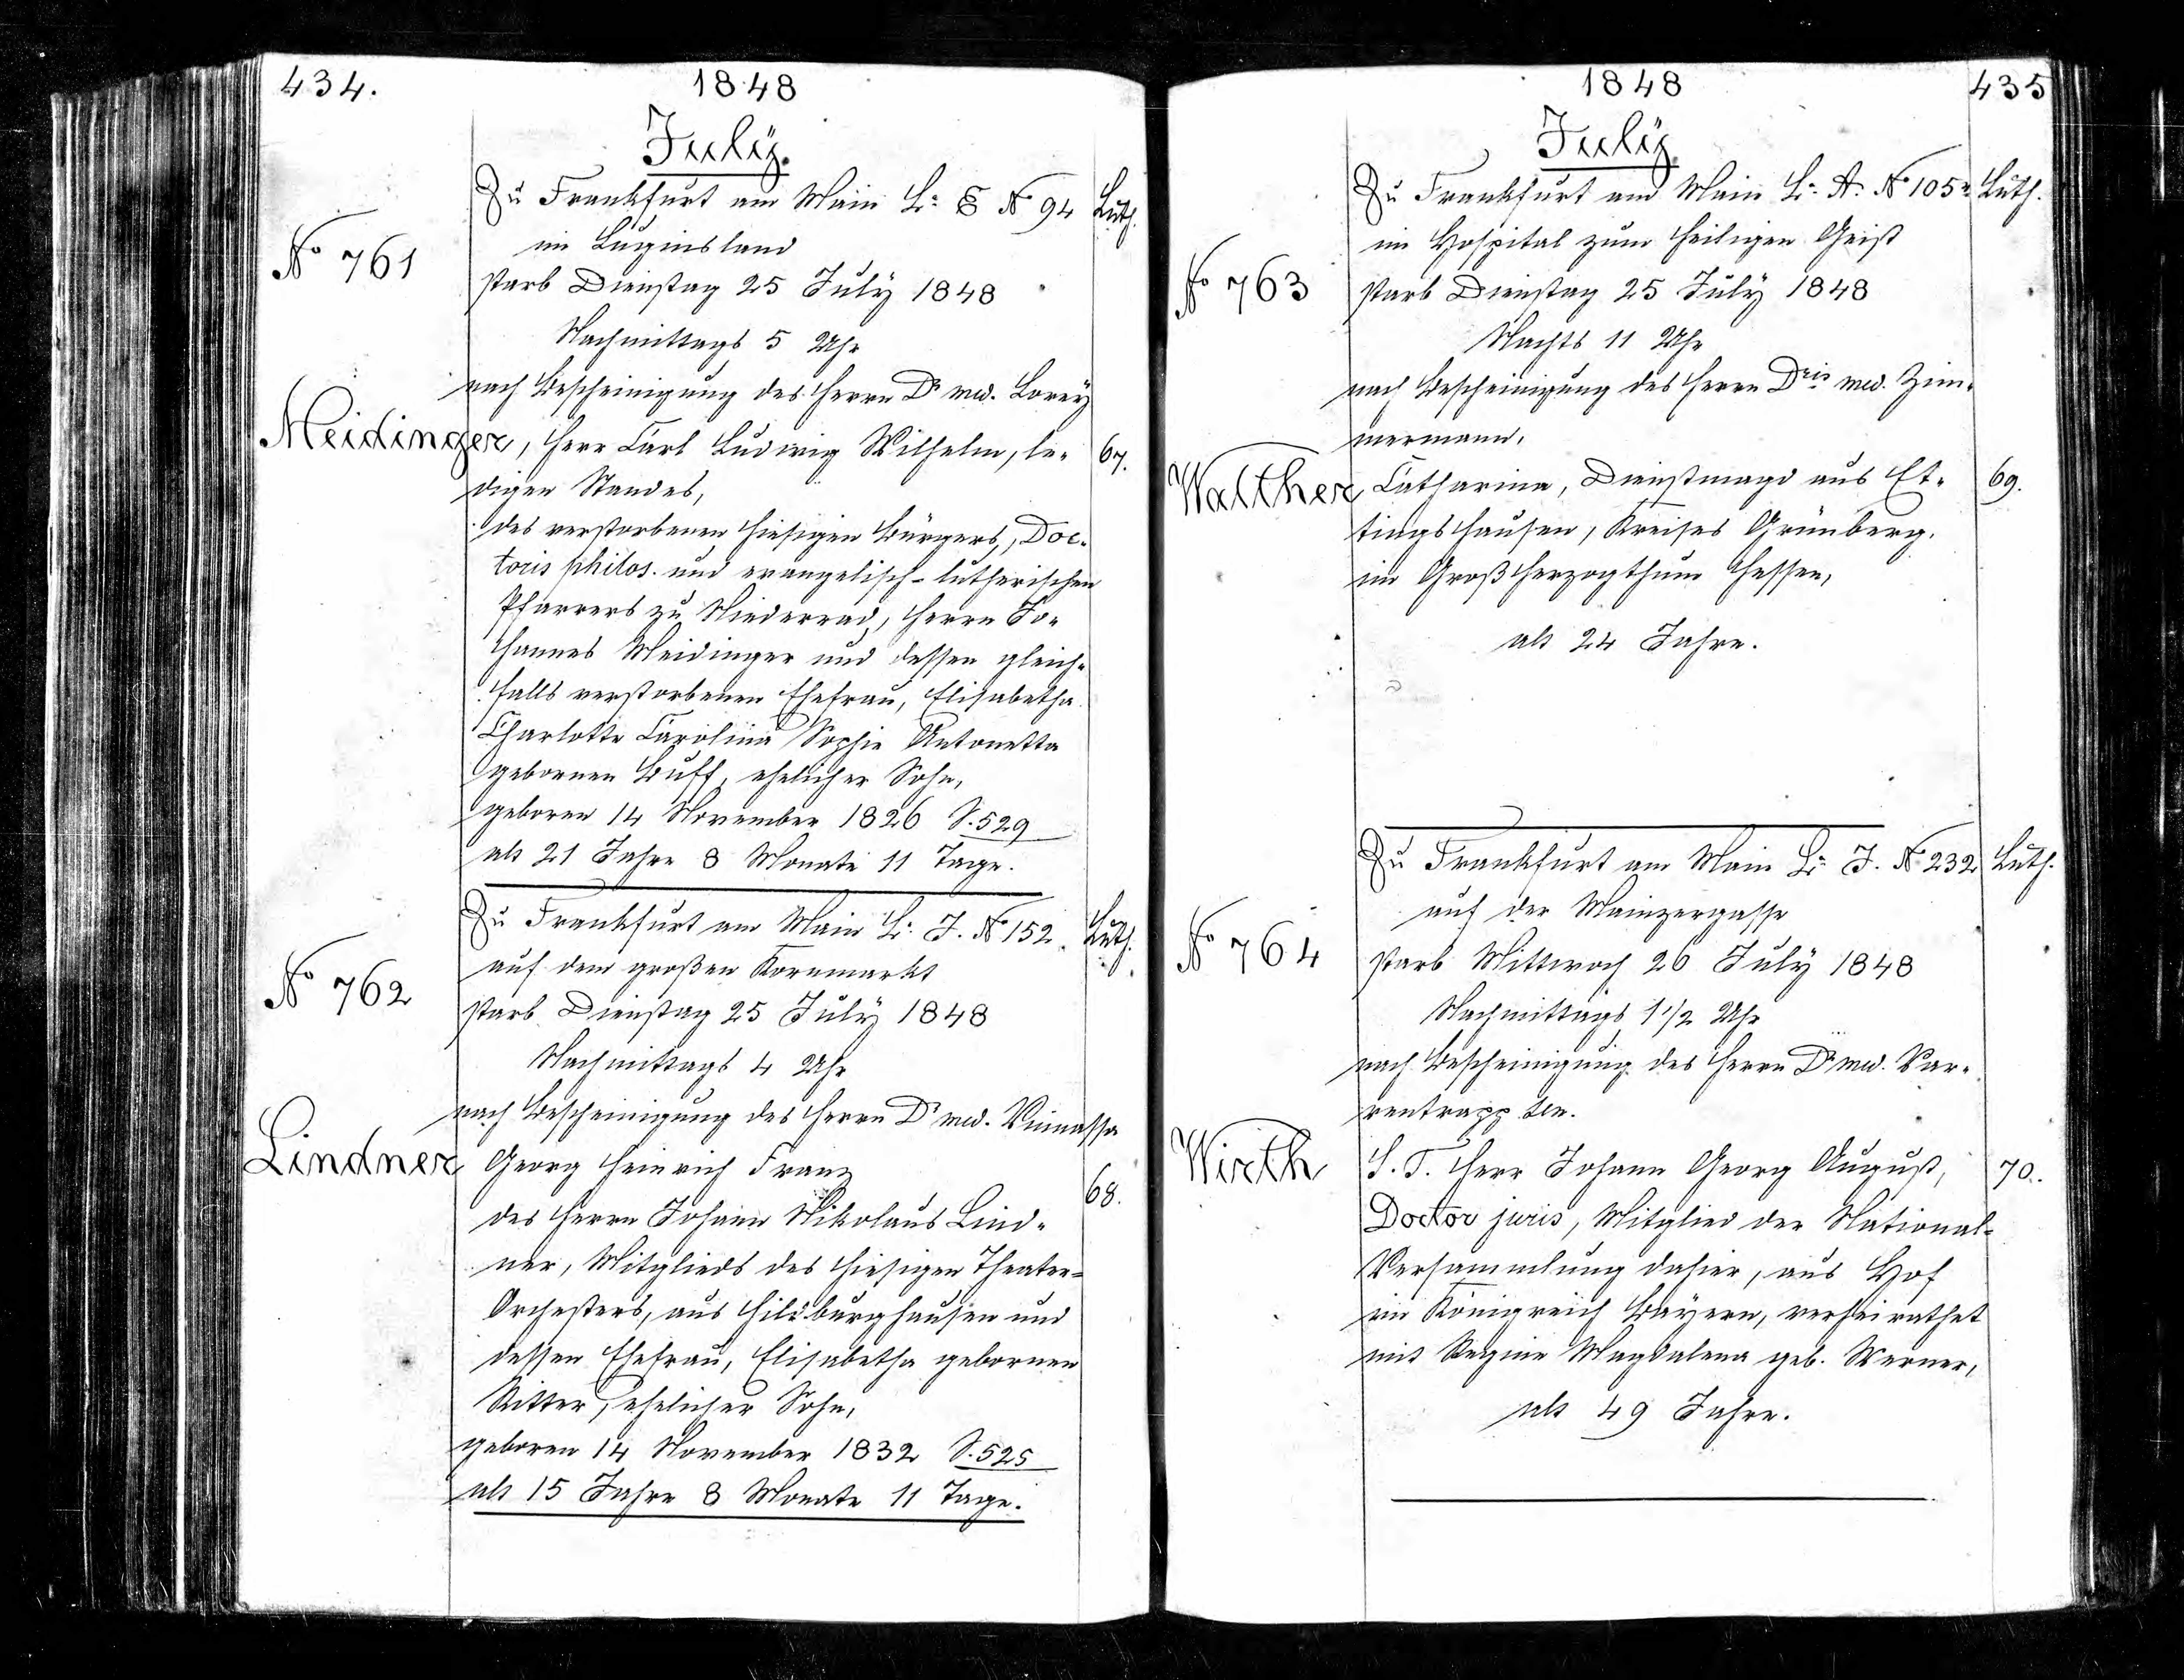 434.
1848
July.
Zu Frankfurt am Main Lr. E No 94 Luth.
im Luginsland
No 761
starb Dienstag 25 July 1848
Nachmittags 5 Uhr
nach Bescheinigung des Herrn Dr med. Lorey
Meidinger, Herr Carl Ludwig Wilhelm, le- 67.
digen Standes,
des verstorbenen hiesigen Bürgers, Doc-
toris philos. und evangelisch-lutherischen
Pfarrers zu Niederrad, Herrn Jo-
hannes Meidinger und dessen gleich-
falls verstorbenen Ehefrau, Elisabetha
Charlotte Carolina Sophie Antonetta
gebornen Buff, ehelicher Sohn,
geboren 14 November 1826 S. 529
alt 21 Jahre 8 Monate 11 Tage.
Zu Frankfurt am Main Lr. J. No 152. Luth.
auf dem großen Kornmarkt
No 762
starb Dienstag 25 July 1848
Nachmittags 4 Uhr
nach Bescheinigung des Herrn Dr med. Vömassa
Lindner Georg Heinrich Franz
68.
des Herrn Johann Nikolaus Lind-
ner, Mitglieds des hiesigen Theater-
Orchesters, aus Hildburghausen und
dessen Ehefrau, Elisabetha gebornen
Ritter, ehelicher Sohn,
geboren 14 November 1832 S. 525
alt 15 Jahre 8 Monate 11 Tage.
1848
435
July
Zu Frankfurt am Main Lr. A. No 105 Luth.
im Hospital zum heiligen Geist
No 763
starb Dienstag 25 July 1848
Nachts 11 Uhr
nach Bescheinigung des Herrn Dris med. Zim-
mermann,
Walther Catharina, Dienstmagd aus Et- 69.
tingshausen, Kreises Grünberg,
im Großherzogthum Hessen,
alt 24 Jahre.
Zu Frankfurt am Main Lr. J. No 232 Luth.
auf der Mainzergasse
No 764
starb Mittwoch 26 July 1848
Nachmittags 1 1/2 Uhr
nach Bescheinigung des Herrn Dr med. Var-
rentrapp sen.
Wirth S. T. Herr Johann Georg August, 70.
Doctor juris, Mitglied der National-
Versammlung dahier, aus Hof
im Königreich Bayern, verheirathet
mit Regine Magdalena geb. Werner,
alt 49 Jahre.